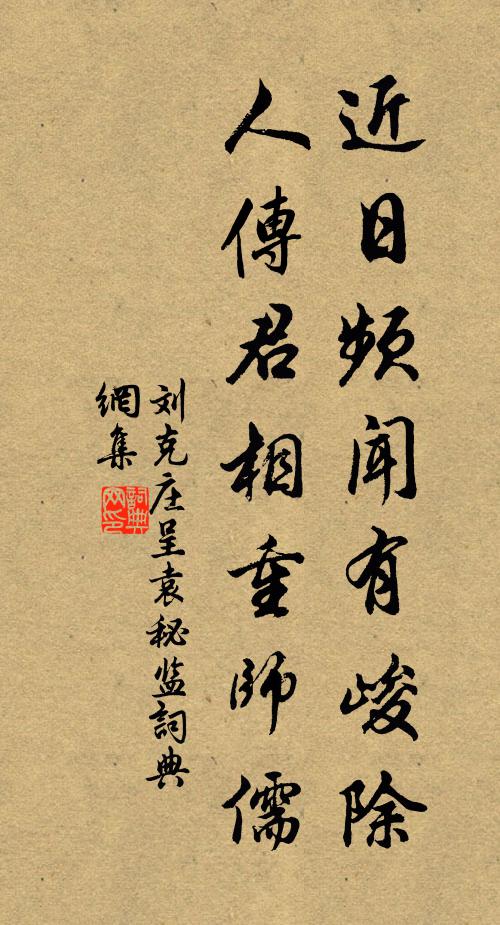 近日频闻有峻除
人傳君相重師儒
刘克庄呈袁秘监詞典
網集
詞典网印